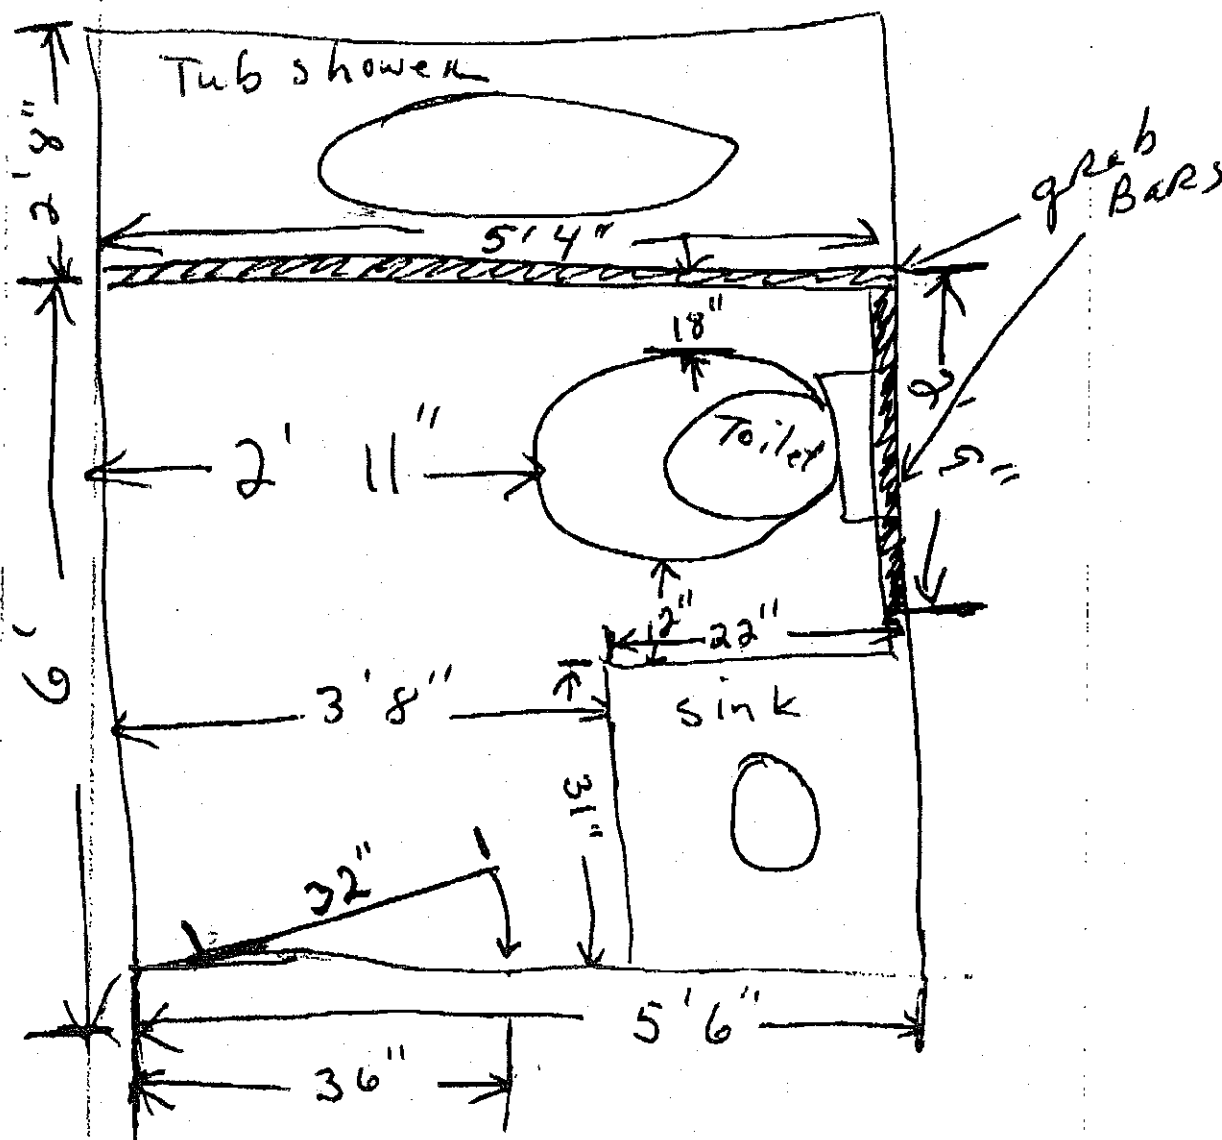 Tub shower
2' 8"
grab
Bars
5' 4"
18"
2' 9"
Toilet
2' 11"
12"
22"
6'
3' 8"
sink
31"
32"
5' 6"
36"